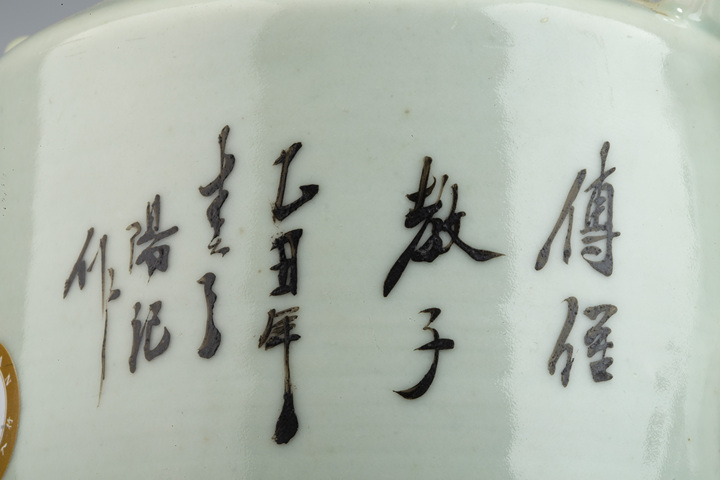 傅經
教子
乙丑年
春月
陽記
作